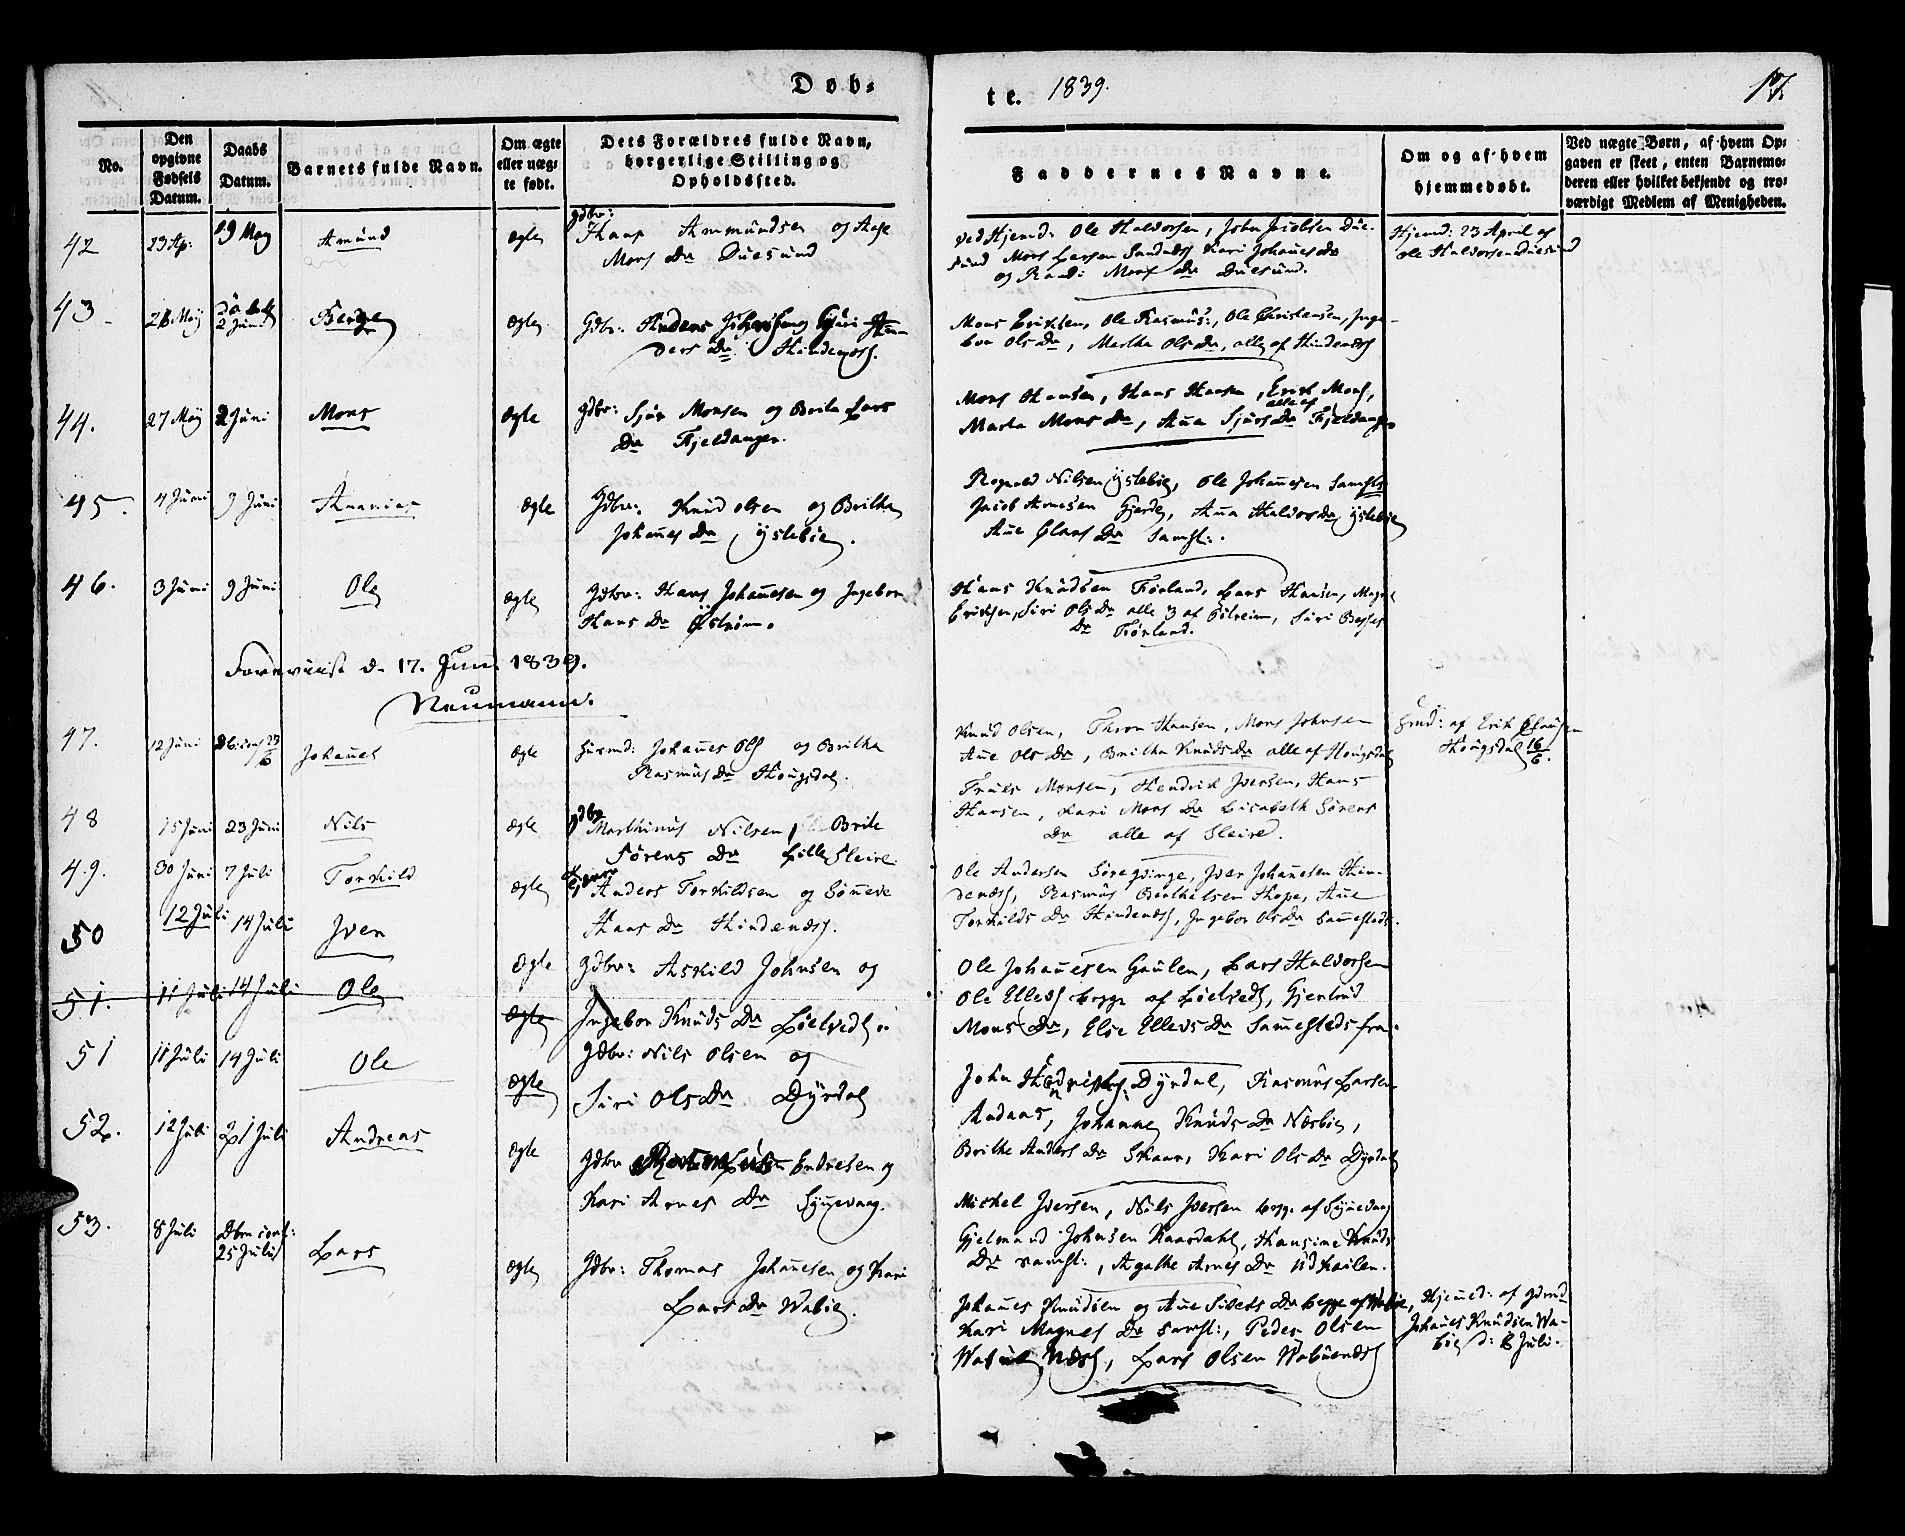 Døb-
te. 1839.
17.
No.
Den opgivne Fødsels Datum.
Daabs Datum.
Barnets fulde Navn.
Om ægte eller uægte født.
Dets Forældres fulde Navn, borgerlige Stilling og Opholdssted.
Faddernes Navne.
Om og af hvem hjemmedøbt.
Ved uægte Børn, af hvem Opgaven er skeet, enten Barnemoderen eller hvilket bekjendt og troværdigt Medlem af Menigheden.
42 23 Ap: 19 May Amund ægte Gdbr:
Ammundsen og Aase
Mons Dr Duesund
ved Hjemd: Ole Haldorsen, John Jacobsen Due-
sund Mons Larsen Sandnæs Kari Johanes Dr
og Randi Mons Dr Duesund.
Hjemd: 23 April af
Ole Haldorsen Duesund
43 May 2 Juni ægte Gdbr: Anders og Guri An-
ders Dr Hindenæss.
Mons Eriksen, Ole Rasmus:, Ole Christensen, Inge-
bor Ols Dr, Martha Ols Dr, alle af Hindenæss
44. 27 May 2 Juni Mons ægte Gdbr: Sjur Monsen og Brita Lars
Dr Fjeldanger.
Mons Hansen, Hans Hansen, Erik Mons,
alle af
Marta Mons Dr, Ane Sjurs Dr Fjeldanger
45. 4 Juni 9 Juni Ananias ægte Gdbr: Knud Olsen og Britha
Johanes Dr Ystebøe.
Nilsen Ystebøe, Ole Johanesen Samsts
Jacob Arnesen Gjerde, Ana Haldors Dr Ystebøe
Ane Claus Dr Samst:.
46. 3 Juni 9 Juni Ole ægte Gdbr: Hans Johanesen og Ingebor
Hans Dr
Hans Knudsen Førland, Lars Hansen, Magne
Ericksen, Siri Ols Dr alle 3 af Siri
Dr Førland.
d. 17. Juni 1839.
Neumann.
47. 12 Juni 23/6 Johanes ægte Husmd: Johanes Ols og Britha
Rasmus Dr Hougsdal.
Knud Olsen, Hansen, Mons Johnsen
Ane Ols Dr, Britha Knuds Dr alle af Hougsdal
Hmd: af Erik Clausen
Hougsdal 16/6.
48 15 Juni 23 Juni Nils ægte Gdbr
Marthinus Nilsen Brite
Sørens Dr Lille Sleire.
Truls Monsen, Hendrik Iversen, Hans
Hansen, Kari Mons Dr Lisabeth Sørens
Dr alle af Sleire.
49. 30 Juni 7 Juli Torkild ægte
Anders Torkildsen og Sønneve
Hans Dr Hindenæss.
Ole Andersen Iver Johanesen Hin-
denæss, Rasmus Berthelsen Hope, Ane
Torkilds Dr Hindenæss, Ingebor Ols Dr Sammesteds.
50 12 Juli 14 Juli Iver ægte Gdbr: Askild Johnsen og
Ingebor Knuds Dr
Ole Johanesen Lars Haldorsen
Ole Ellevs begge af Gjertrud
Mons Dr, Else Ellevs Dr Sammesteds fra.
51. 11 Juli 14 Juli Ole ægte
51 11 Juli 14 Juli Ole ægte Gdbr: Nils Olsen og
Siri Ols Dr Dyrdal
John Dyrdal, Rasmus Larsen
Andaas, Johanne Knuds Dr Nøsbøe,
Brithe Anders Dr Skaar, Kari Ols Dr Dyrdal
52. 12 Juli 21 Juli Andreas ægte Gdbr Endresen og
Kari Arnes Dr Synnevaag.
Michel Iversen, Nils Iversen begge af Synnevaag
Gjelmund Johnsen Kaardahl, Hansine Knuds
Dr samst:, Agathe Arnes Dr
53. 8 Juli 25 Juli Lars ægte Gdbr: Thomas Johanesen og Kari
Lars Dr Wabøe.
Johanes Knudsen og Ane Siverts Dr begge af Wabøe,
Kari Magnes Dr samst:, Peder Olsen
Lars Olsen
Hjemed: af Gdmd
Johanes Knudsen Wa-
bøe d: 8 Juli.